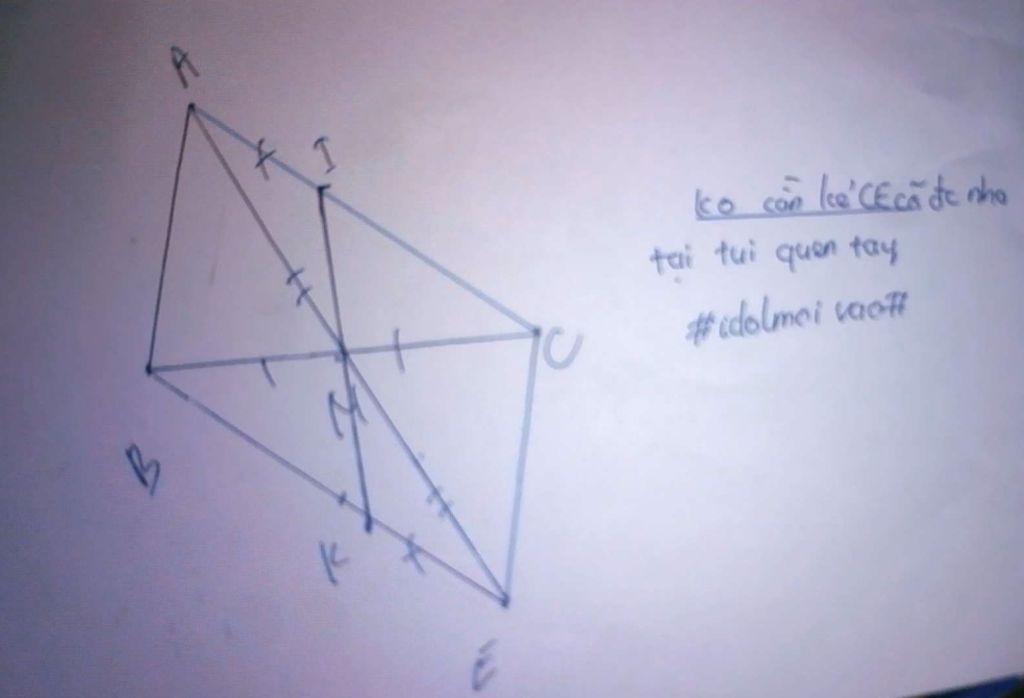 A
I
C
M
B
K
E
ko cần kẻ CE cã đc nha
tại tui quen tay
#idolmoi vao#